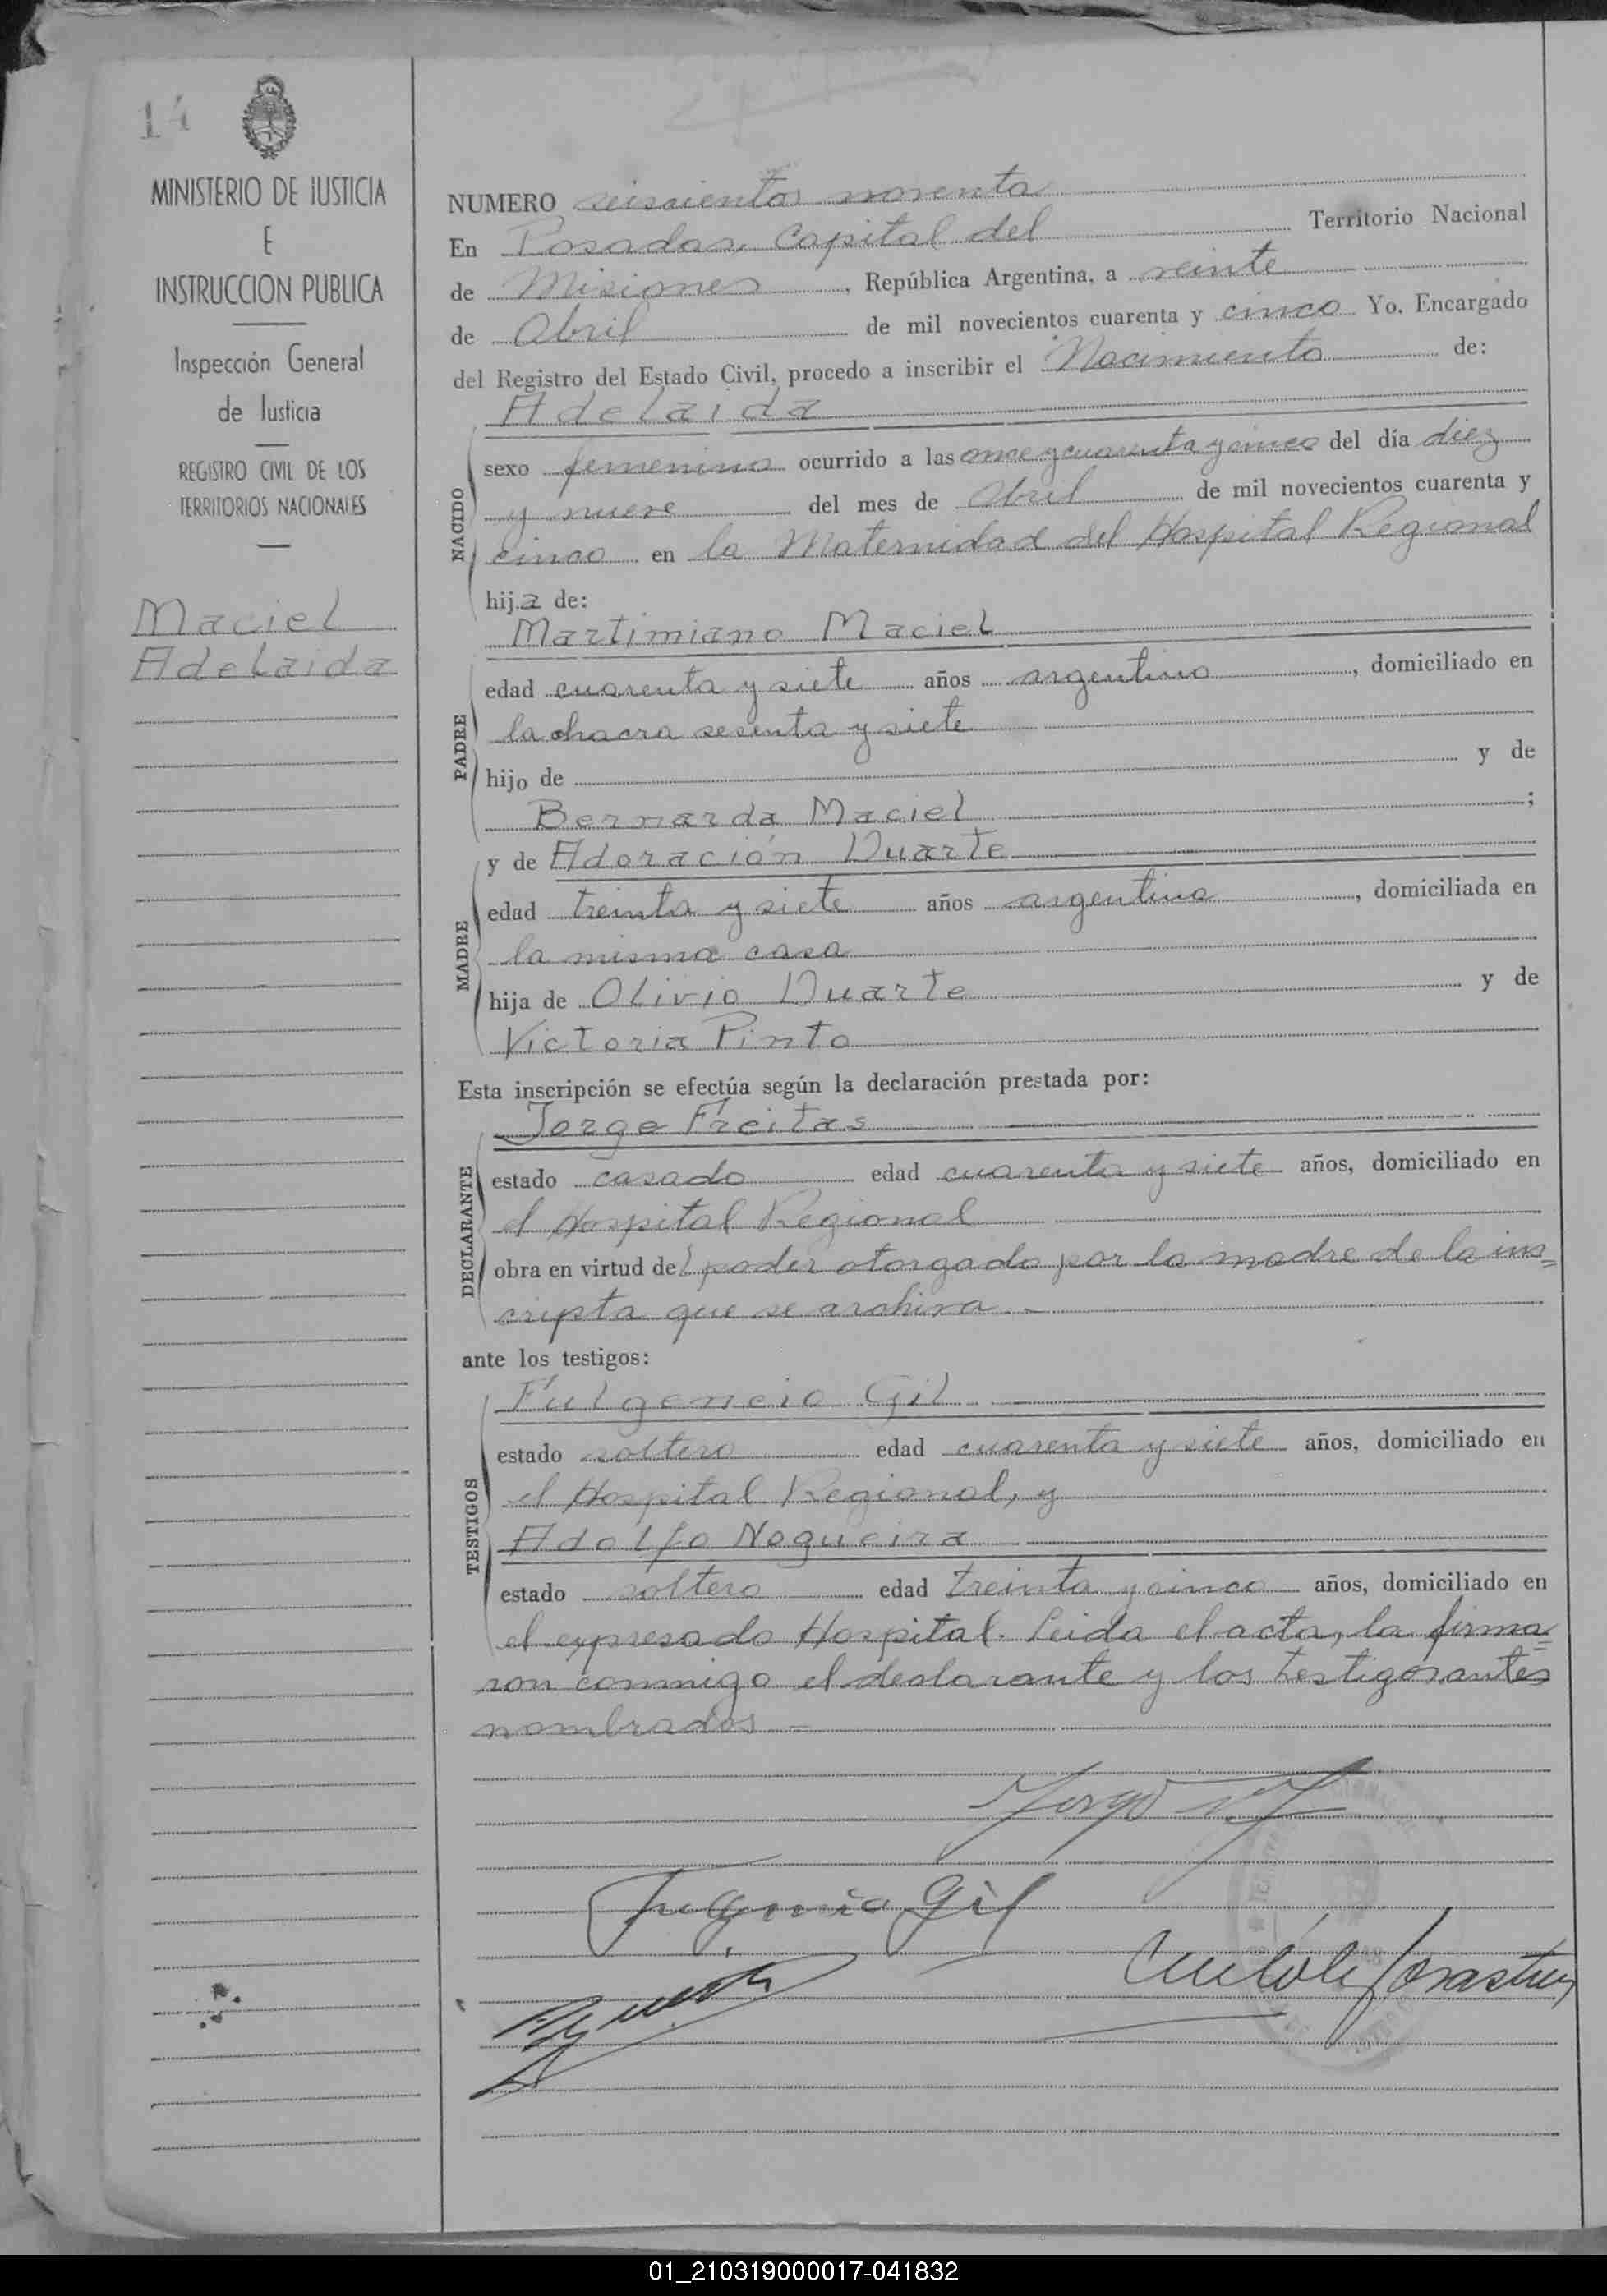 14
MINISTERIO DE JUSTICIA
E
INSTRUCCION PUBLICA
Inspección General
de Justicia
REGISTRO CIVIL DE LOS
TERRITORIOS NACIONALES
Maciel
Adelaida
NUMERO seiscientos noventa
En Posadas, Capital del Territorio Nacional
de Misiones, República Argentina, a veinte
de Abril de mil novecientos cuarenta y cinco Yo, Encargado
del Registro del Estado Civil, procedo a inscribir el Nacimiento de:
Adelaida
NACIDO
sexo femenino ocurrido a las once y cuarenta y cinco del día diez
y nueve del mes de Abril de mil novecientos cuarenta y
cinco en la Maternidad del Hospital Regional
hija de:
Martimiano Maciel
PADRE
edad cuarenta y siete años argentino, domiciliado en
la chacra sesenta y siete
hijo de y de
Bernarda Maciel;
y de Adoración Duarte
MADRE
edad treinta y siete años argentina, domiciliada en
la misma casa
hija de Olivio Duarte y de
Victoria Pinto
Esta inscripción se efectúa según la declaración prestada por:
Jorge Freitas
DECLARANTE
estado casado edad cuarenta y siete años, domiciliado en
el Hospital Regional
obra en virtud del poder otorgado por la madre de la ins=
cripta que se archiva.-
ante los testigos:
Fulgencio Gil
TESTIGOS
estado soltero edad cuarenta y siete años, domiciliado en
el Hospital Regional, y
Adolfo Nogueira
estado soltero edad treinta y cinco años, domiciliado en
el expresado Hospital. Leida el acta, la firma=
ron conmigo el declarante y los testigos antes
nombrados -
Fulgencio Gil
01_210319000017-041832